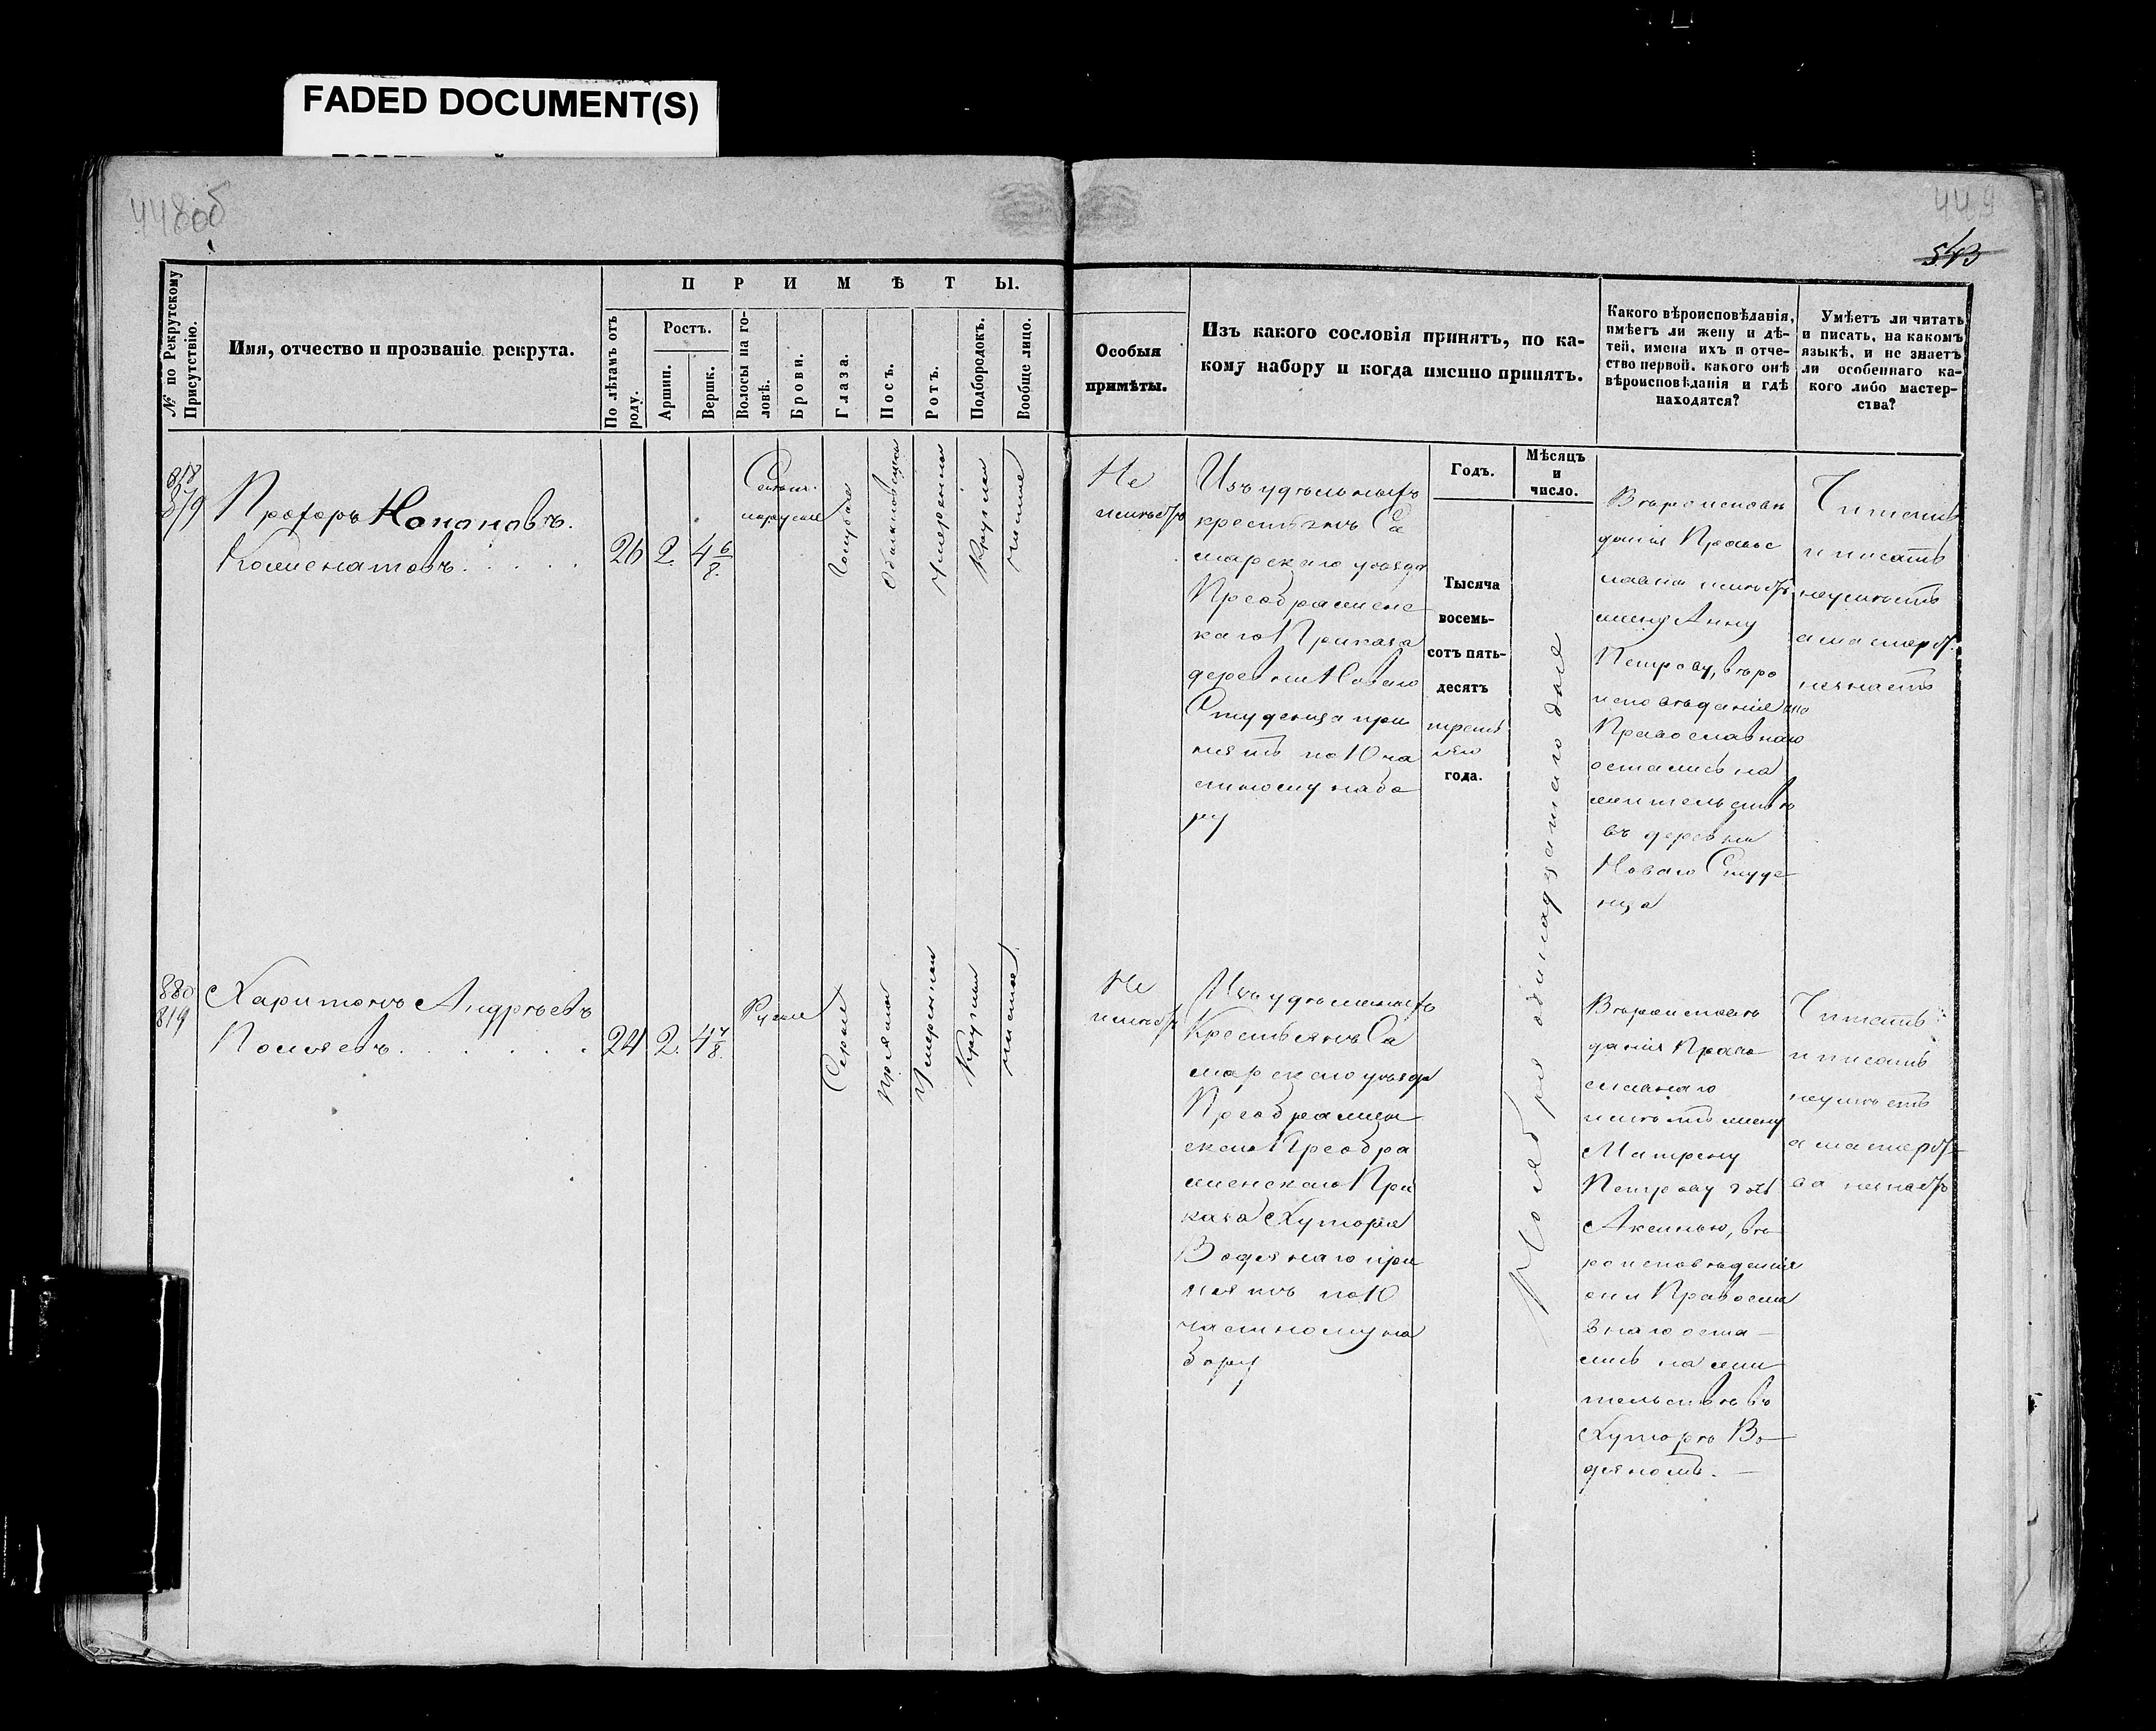 FADED DOCUMENT(S)
448об
449
543
№ по Рекрутскому Присутствію.
Имя, отчество и прозваніе рекрута.
ПРИМѢТЫ.
По лѣтамъ отъ роду.
Ростъ.
Аршин.
Вершк.
Волосы на головѣ.
Брови.
Глаза.
Носъ.
Ротъ.
Подбородокъ.
Вообще лицо.
Особыя
примѣты.
Изъ какого сословія принятъ, по ка-
кому набору и когда именно принятъ.
Какого вѣроисповѣданія,
имѣетъ ли жену и дѣ-
тей, имена ихъ и отче-
ство первой, какого онѣ
вѣроисповѣданія и гдѣ
находятся?
Умѣетъ ли читать
и писать, на какомъ
языкѣ, и не знаетъ
ли особеннаго ка-
кого либо мастер-
ства?
Годъ.
Мѣсяцъ
и
число.
879
Прохоръ Кононовъ.
26 2. 4 6/8.
Голубые
Обыкновенный
Умеренный
Круглый
чистое
Не
имѣетъ
Изъ удѣльныхъ
крестьянъ Са
марскаго уѣзда
Преображенс
каго Приказа
деревни Новаго
Студенца при
нятъ по 10 ча
стному набо
ру
Тысяча
восемь-
сотъ пять-
десятъ
третья
го
года.
Ноября одинадцатаго дня
Вѣроисповѣ
данія Правос
лавна имѣетъ
жену Анну
Петрову, вѣро
исповѣданія она
Православнаго
остались на
жительствѣ
въ деревни
Новаго Студе
нца
Читать
и писать
неумѣетъ
а мастерст.
незнаетъ
880
819
Харитонъ Андрѣевъ
24 2. 4 7/8.
Русые
Серые
Прямой
Умеренный
Круглый
чистое
Не
имѣетъ
Изъ удѣльныхъ
Крестьянъ Са
марскаго уѣзда
Преображен
скаго Преобра
женскаго При
каза Хутора
Водянаго при
нятъ по 10
частному на
бору
Вѣроисповѣ
данія Право
славнаго
имѣетъ жену
Матрену
Петрову дочь
Аксинью, вѣ
роисповѣданія
они Правосла
внаго оста-
лись на жи
тельствѣ въ
Хуторѣ Во-
дяномъ.
Читать
и писать
неумѣетъ
а мастерст-
ва незнаетъ